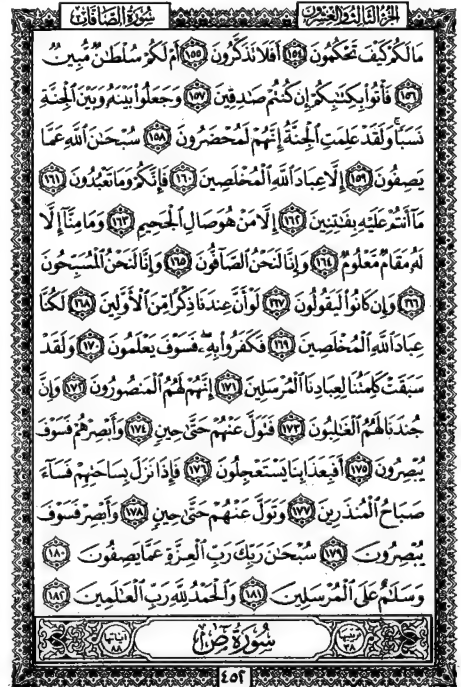 سُورَةُ الصَّافَّاتِ
الجُزْءُ الثَّالِثُ وَالعِشْرُونَ
مَا لَكُمْ كَيْفَ تَحْكُمُونَ ١٥٤ أَفَلَا تَذَكَّرُونَ ١٥٥ أَمْ لَكُمْ سُلْطَانٌ مُّبِينٌ
١٥٦ فَأْتُوا بِكِتَابِكُمْ إِن كُنتُمْ صَادِقِينَ ١٥٧ وَجَعَلُوا بَيْنَهُ وَبَيْنَ الْجِنَّةِ
نَسَبًا وَلَقَدْ عَلِمَتِ الْجِنَّةُ إِنَّهُمْ لَمُحْضَرُونَ ١٥٨ سُبْحَانَ اللَّهِ عَمَّا
يَصِفُونَ ١٥٩ إِلَّا عِبَادَ اللَّهِ الْمُخْلَصِينَ ١٦٠ فَإِنَّكُمْ وَمَا تَعْبُدُونَ ١٦١
مَا أَنتُمْ عَلَيْهِ بِفَاتِنِينَ ١٦٢ إِلَّا مَنْ هُوَ صَالِ الْجَحِيمِ ١٦٣ وَمَا مِنَّا إِلَّا
لَهُ مَقَامٌ مَّعْلُومٌ ١٦٤ وَإِنَّا لَنَحْنُ الصَّافُّونَ ١٦٥ وَإِنَّا لَنَحْنُ الْمُسَبِّحُونَ
١٦٦ وَإِن كَانُوا لَيَقُولُونَ ١٦٧ لَوْ أَنَّ عِندَنَا ذِكْرًا مِّنَ الْأَوَّلِينَ ١٦٨ لَكُنَّا
عِبَادَ اللَّهِ الْمُخْلَصِينَ ١٦٩ فَكَفَرُوا بِهِ فَسَوْفَ يَعْلَمُونَ ١٧٠ وَلَقَدْ
سَبَقَتْ كَلِمَتُنَا لِعِبَادِنَا الْمُرْسَلِينَ ١٧١ إِنَّهُمْ لَهُمُ الْمَنصُورُونَ ١٧٢ وَإِنَّ
جُندَنَا لَهُمُ الْغَالِبُونَ ١٧٣ فَتَوَلَّ عَنْهُمْ حَتَّىٰ حِينٍ ١٧٤ وَأَبْصِرْهُمْ فَسَوْفَ
يُبْصِرُونَ ١٧٥ أَفَبِعَذَابِنَا يَسْتَعْجِلُونَ ١٧٦ فَإِذَا نَزَلَ بِسَاحَتِهِمْ فَسَاءَ
صَبَاحُ الْمُنذَرِينَ ١٧٧ وَتَوَلَّ عَنْهُمْ حَتَّىٰ حِينٍ ١٧٨ وَأَبْصِرْ فَسَوْفَ
يُبْصِرُونَ ١٧٩ سُبْحَانَ رَبِّكَ رَبِّ الْعِزَّةِ عَمَّا يَصِفُونَ ١٨٠
وَسَلَامٌ عَلَى الْمُرْسَلِينَ ١٨١ وَالْحَمْدُ لِلَّهِ رَبِّ الْعَالَمِينَ ١٨٢
ترتيبها ٣٨
سُورَةُ صٓ
آياتها ٨٨
٤٥٢